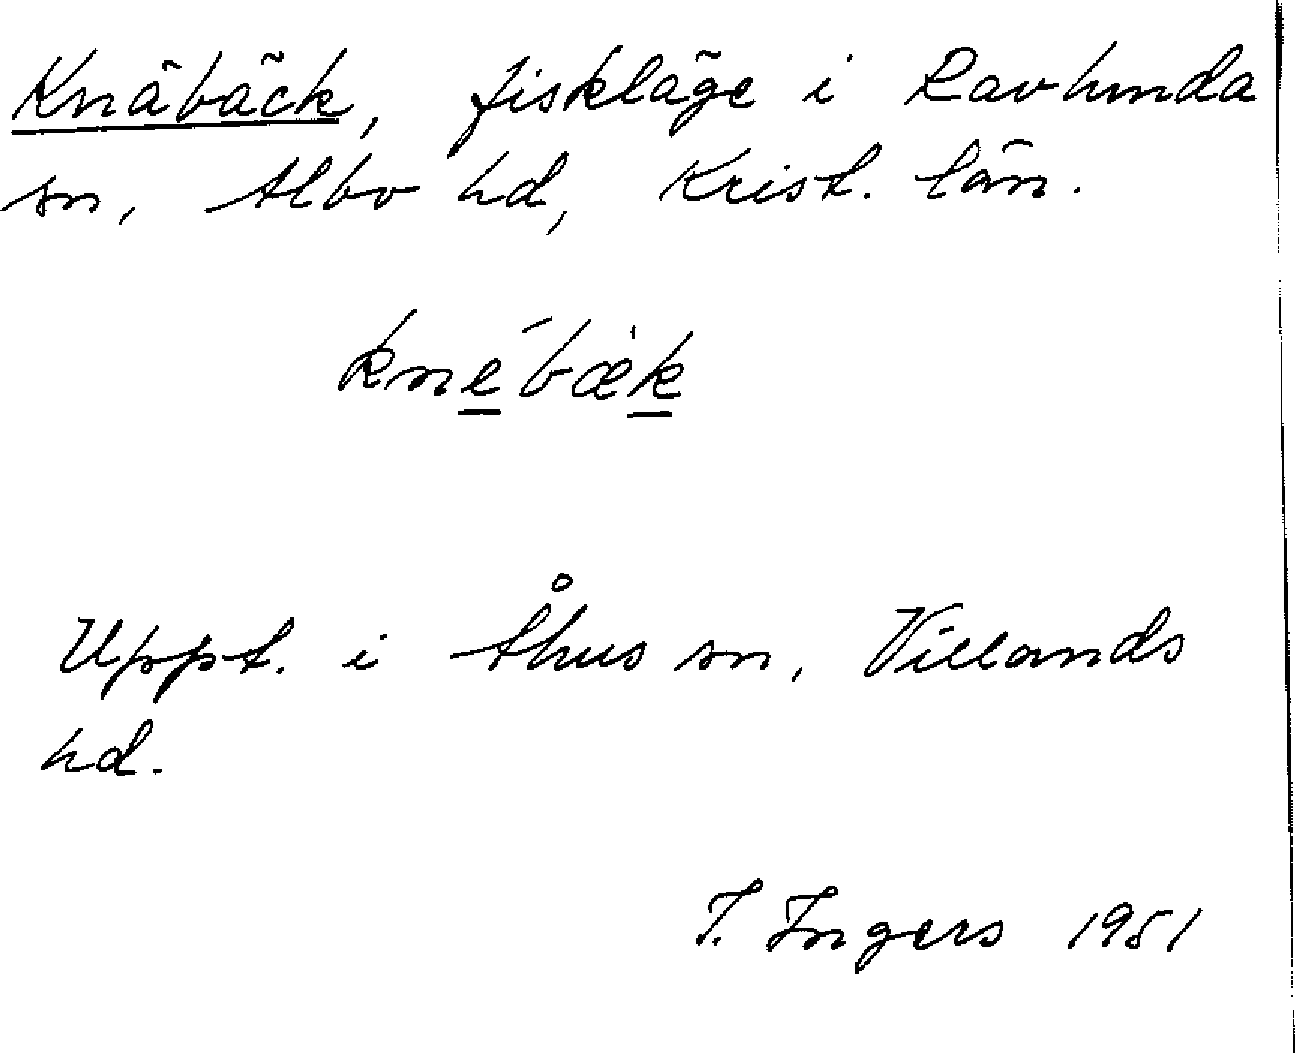 Knäbäck, fiskläge i Ravlunda
sn, Albo hd, Krist. län.
knébæ̀k
Uppt. i Åhus sn, Villands
hd.
I. Ingers 1951